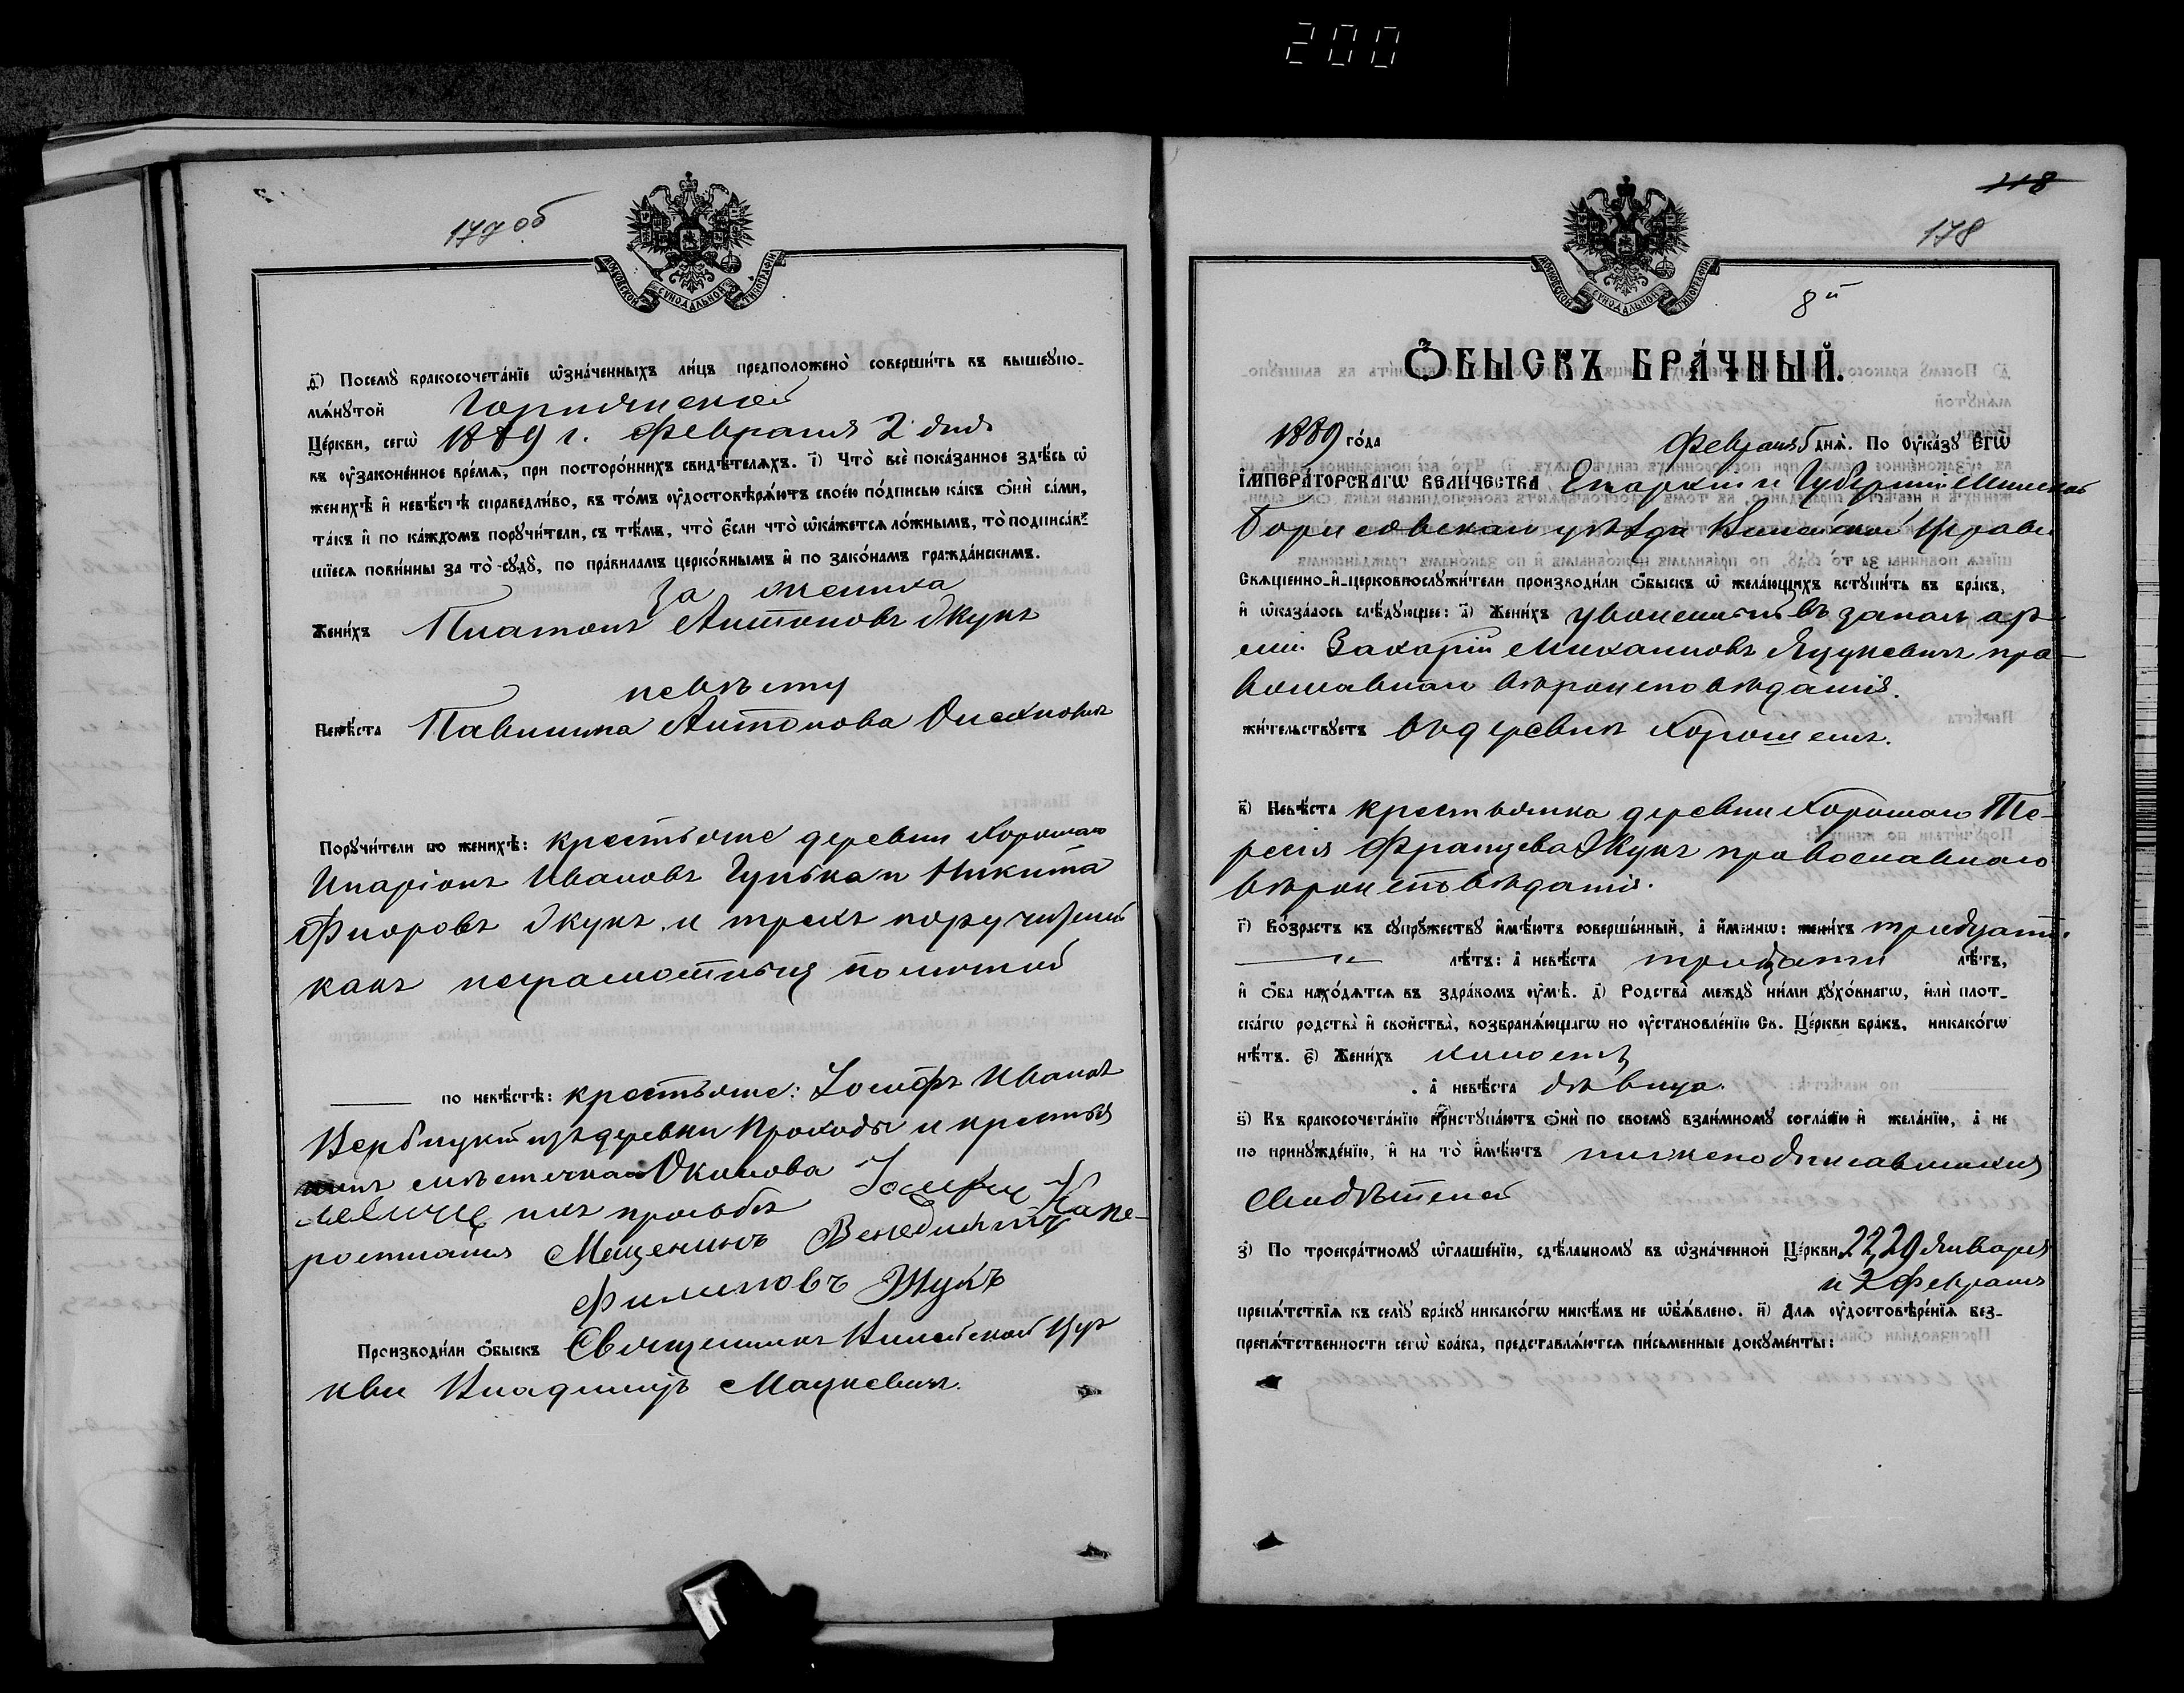 200
177 об
МОСКОВСКОЙ СѴНОДАЛЬНОЙ ТИПОГРАФІИ
д҃і) Посемꙋ̀ бракосочета́нїе ѡ҆зна́ченныхъ ли́цъ предположено̀ соверши́ть въ вышеꙋпо-
мѧ́нꙋтой
Це́ркви, сегѡ̀ 1889 г. Февраля 2 дня
въ ᲂу҆законе́нное вре́мѧ, при посторо́ннихъ свидѣ́телѧхъ. і҃) Что̀ всѐ пока́занное здѣ́сь ѡ҆
женихѣ̀ и҆ невѣ́стѣ справедли́во, въ то́мъ ᲂу҆достовѣрѧ́ютъ свое́ю по́дписью ка́къ ѻ҆нѝ са́ми,
та́къ и҆ по ка́ждомъ порꙋчи́тели, съ тѣ́мъ, что̀ є҆́сли что̀ ѡ҆ка́жетсѧ ло́жнымъ, то̀ подписа́в-
шїесѧ пови́нны за то̀ сꙋдꙋ̀, по пра́виламъ церко́внымъ и҆ по зако́намъ гражда́нскимъ.
За жениха
Жени́хъ Платонъ Антоновъ Жукъ
невѣсту
Невѣ́ста Павлина Антонова
Порꙋчи́тели по женихѣ̀: крестьяне деревни Хорошаго
Иларіонъ Ивановъ Гулька и Никита
Флоровъ Жукъ и трехъ поручителей
какъ неграмотныхъ по личной
по невѣ́стѣ: крестьяне: Іосифъ Ивановъ
Вербицкій изъ деревни Проходы и крестья
нинъ мѣстечка Околова Іосифъ
ихъ просьбѣ
Мещенинъ Венедиктъ
Филиповъ Жукъ
Производи́ли ѻ҆́быскъ Священникъ Вилейской Цер
кви Владиміръ Мацкевичъ.
118
178
МОСКОВСКОЙ СѴНОДАЛЬНОЙ ТИПОГРАФІИ
8й
Ѻ҆́БЫСКЪ БРА́ЧНЫЙ.
1889 го́да Февраля 5 днѧ̀. По ᲂу҆ка́зꙋ Єгѡ̀
І҆мпера́торскагѡ вели́чества Епархіи и Губерніи Минской
Борисовскаго уѣзда Вилейской Церкви
Свѧще́нно-и҆-церковнослꙋжи́тели производи́ли ѻ҆́быскъ ѡ҆ жела́ющихъ встꙋпи́ть въ бра́къ,
и҆ ѡ҆каза́лось слѣ́дꙋющее: а҃) Жени́хъ уволенный въ запасъ ар-
міи Захарій Михаиловъ Яцукевичъ пра-
вославнаго вѣроисповѣданія.
жи́тельствꙋетъ въ деревнѣ Хорошемъ.
в҃) Невѣ́ста крестьянка деревни Хорошаго Те-
ресія Францева Жукъ православнаго
вѣроисповѣданія.
г҃) Во́зрастъ къ сꙋпрꙋ́жествꙋ и҆мѣ́ютъ соверше́нный, а҆ и҆́меннѡ: жени́хъ тридцати
лѣ́тъ: а҆ невѣ́ста тридцати лѣ́тъ,
и҆ ѻ҆́ба нахо́дѧтсѧ въ здра́вомъ ᲂу҆мѣ̀. д҃) Родства̀ междꙋ̀ ни́ми дꙋхо́внагѡ, и҆лѝ плот-
ска́гѡ родства̀ и҆ свойства̀, возбранѧ́ющагѡ по ᲂу҆становле́нїю Св. Це́ркви бра́къ, никако́гѡ
нѣ́тъ. є҃) Жени́хъ холостъ
а҆ невѣ́ста дѣвица.
ѕ҃) Къ бракосочета́нїю пристꙋпа́ютъ ѻ҆нѝ по своемꙋ̀ взаи́мномꙋ согла́сїю и҆ жела́нїю, а҆ не
по принꙋжде́нїю, и҆ на то̀ и҆мѣ́ютъ нижеподписавшихся
свидѣтелей
з҃) По троекра́тномꙋ ѡ҆глаше́нїю, сдѣ́ланномꙋ въ ѡ҆зна́ченной Це́ркви 22, 29 Января
и 2 Февраля
препѧ́тствїѧ къ семꙋ̀ бра́кꙋ никако́гѡ никѣ́мъ не ѡ҆б̾ѧ́влено. и҃) Длѧ ᲂу҆достовѣре́нїѧ без-
препѧ́тственности сегѡ̀ бра́ка, представлѧ́ютсѧ пи́сьменные докꙋме́нты: